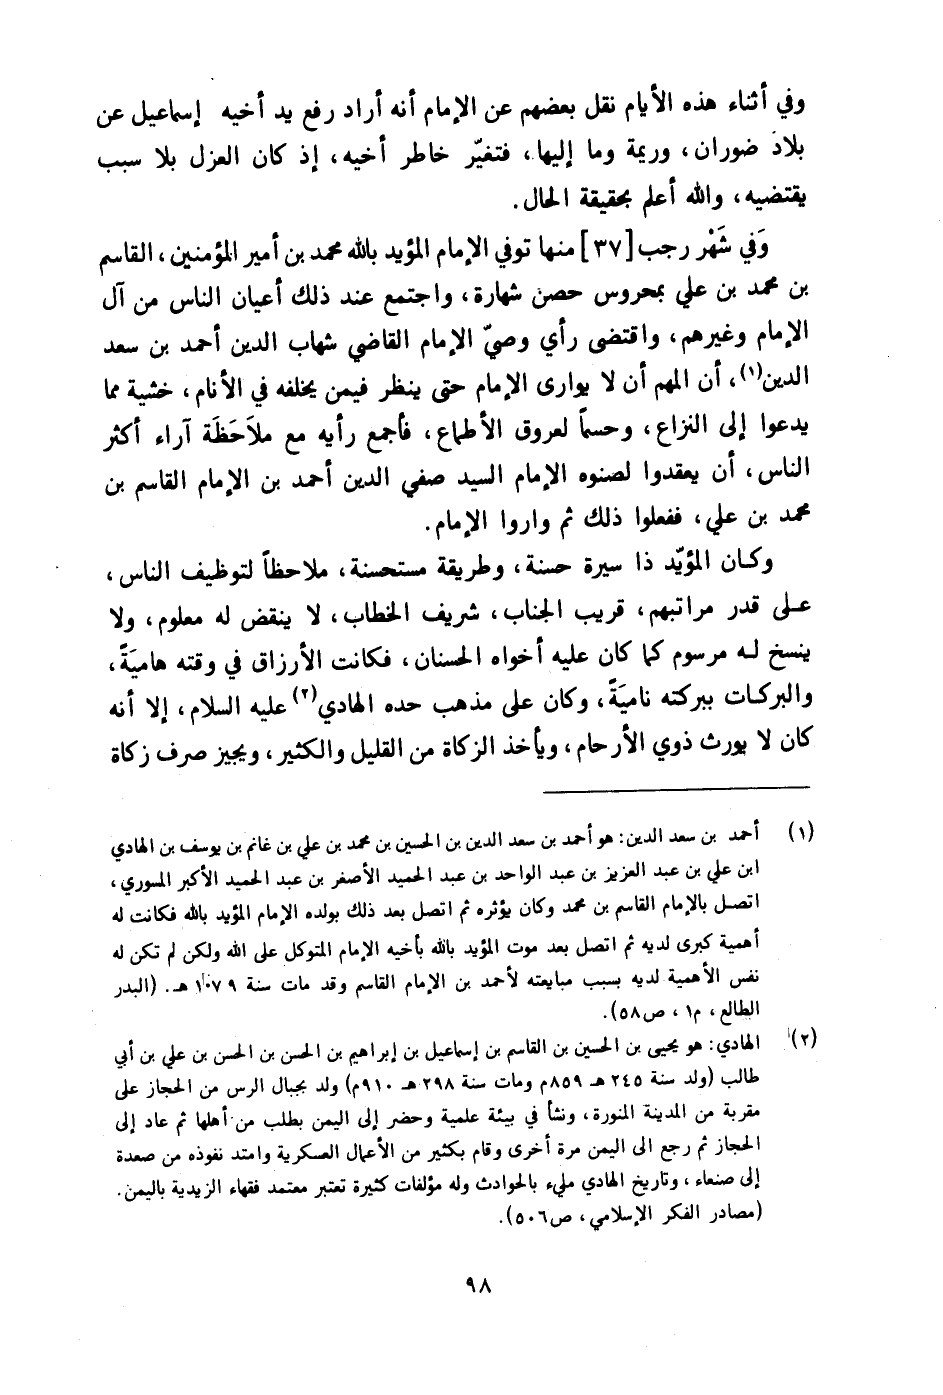 وفي أثناء هذه الأيام نقل بعضهم عن الإمام أنه أراد رفع يد أخيه إسماعيل عن
بلاد ضوران، وريمة وما إليها، فتغيّر خاطر أخيه، إذ كان العزل بلا سبب
يقتضيه، والله أعلم بحقيقة الحال.
وَفي شَهْر رجب [٣٧] منها توفي الإمام المؤيد بالله محمد بن أمير المؤمنين، القاسم
بن محمد بن علي بمحروس حصن شهارة، واجتمع عند ذلك أعيان الناس من آل
الإمام وغيرهم، واقتضى رأي وصيّ الإمام القاضي شهاب الدين أحمد بن سعد
الدين(١)، أن المهم أن لا يوارى الإمام حتى ينظر فيمن يخلفه في الأنام، خشية مما
يدعوا إلى النزاع، وحسماً لعروق الأطماع، فأجمع رأيه مع ملاَحَظَة آراء أكثر
الناس، أن يعقدوا لصنوه الإمام السيد صفي الدين أحمد بن الإمام القاسم بن
محمد بن علي، ففعلوا ذلك ثم واروا الإمام.
وكان المؤيّد ذا سيرة حسنة، وطريقة مستحسنة، ملاحظاً لتوظيف الناس،
على قدر مراتبهم، قريب الجناب، شريف الخطاب، لا ينقض له معلوم، ولا
ينسخ له مرسوم كما كان عليه أخواه الحسنان، فكانت الأرزاق في وقته هاميَةً،
والبركات ببركته ناميَةً، وكان على مذهب حده الهادي(٢) عليه السلام، إلا أنه
كان لا يورث ذوي الأرحام، ويأخذ الزكاة من القليل والكثير، ويجيز صرف زكاة
(١) أحمد بن سعد الدين: هو أحمد بن سعد الدين بن الحسين بن محمد بن علي بن غانم بن يوسف بن الهادي
ابن علي بن عبد العزيز بن عبد الواحد بن عبد الحميد الأصغر بن عبد الحميد الأكبر المسوري،
اتصل بالإمام القاسم بن محمد وكان يؤثره ثم اتصل بعد ذلك بولده الإمام المؤيد بالله فكانت له
أهمية كبرى لديه ثم اتصل بعد موت المؤيد بالله بأخيه الإمام المتوكل على الله ولكن لم تكن له
نفس الأهمية لديه بسبب مبايعته لأحمد بن الإمام القاسم وقد مات سنة ١٠٧٩ هـ. (البدر
الطالع، م١، ص٥٨).
(٢) الهادي: هو يحيى بن الحسين بن القاسم بن إسماعيل بن إبراهيم بن الحسن بن الحسن بن علي بن أبي
طالب (ولد سنة ٢٤٥ هـ ٨٥٩م ومات سنة ٢٩٨ هـ ٩١٠م) ولد بجبال الرس من الحجاز على
مقربة من المدينة المنورة، ونشأ في بيئة علمية وحضر إلى اليمن بطلب من أهلها ثم عاد إلى
الحجاز ثم رجع الى اليمن مرة أخرى وقام بكثير من الأعمال العسكرية وامتد نفوذه من صعدة
إلى صنعاء، وتاريخ الهادي مليء بالحوادث وله مؤلفات كثيرة تعتبر معتمد فقهاء الزيدية باليمن.
(مصادر الفكر الإسلامي، ص٥٠٦).
٩٨